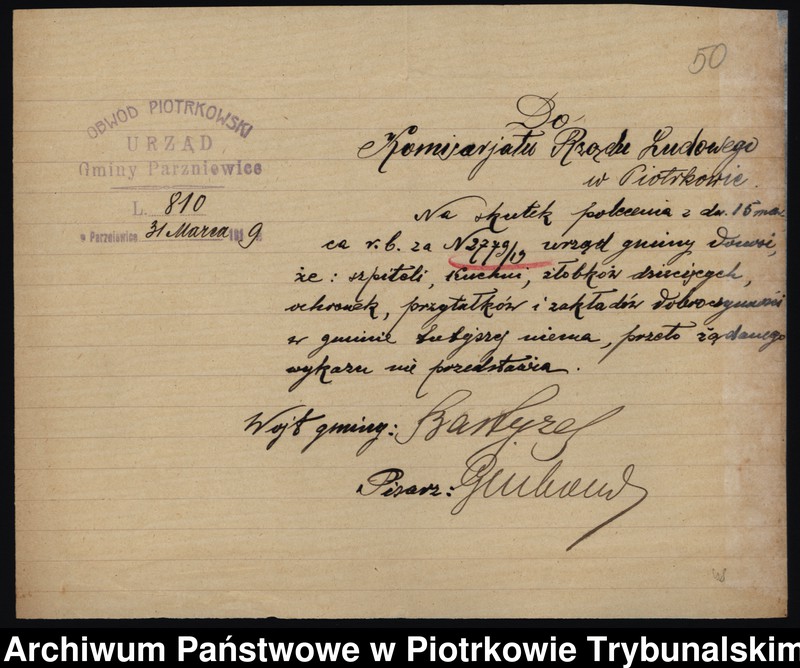 50
OBWÓD PIOTRKOWSKI
URZĄD
Gminy Parzniewice
L. 810
w Parzniewice 31 Marca 1919
Do
Komisarjatu Rządu Ludowego
w Piotrkowie.
Na skutek polecenia z dn. 15 mar
ca r.b. za N2779/19 urząd gminy donosi,
że: szpitali, kuchni, żłobków dziecięcych,
ochronek, przytułków i zakładów dobroczynności
w gminie tutejszej niema, przeto żądanego
wykazu nie przedstawia.
Wojt gminy:
Pisarz:
Archiwum Państwowe w Piotrkowie Trybunalskim